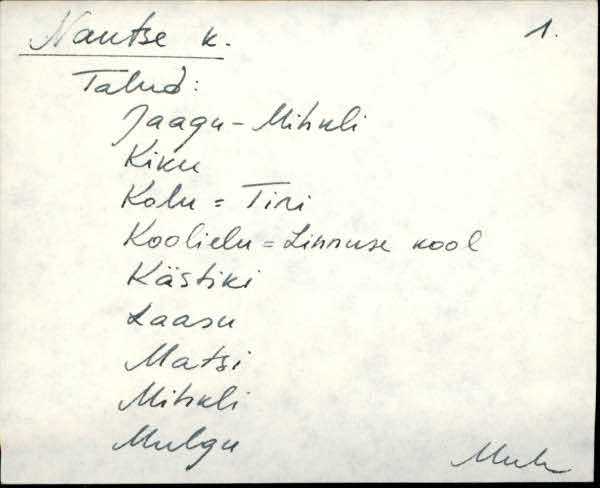 Nautse k. 1.
Talud:
Jaagu - Mihkli
Kiku
Kolu = Tiri
Koolielu = Linnuse kool
Kästiki
Laasu
Matsi
Mihkli
Mulgu
Muh